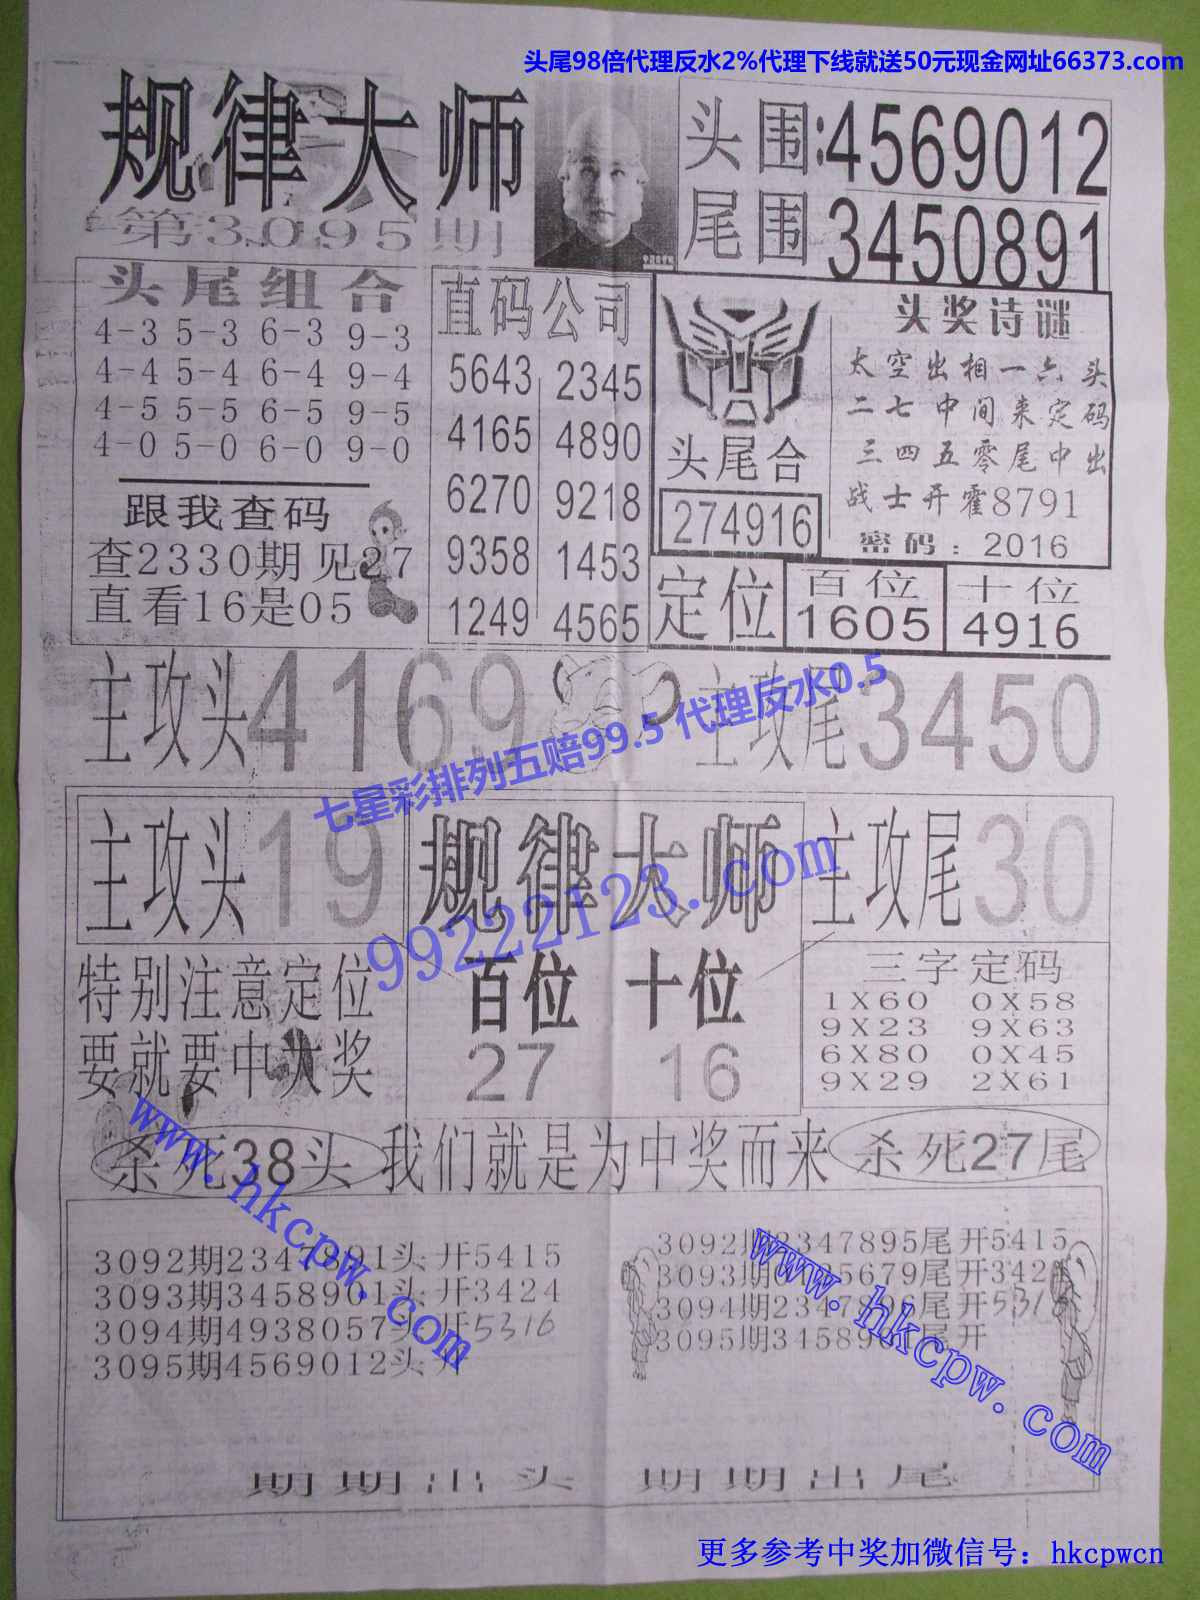 头尾98倍代理反水2%代理下线就送50元现金网址66373.com
规律大师
第3095期
头围:4569012
尾围 3450891
头尾组合
4-3 5-3 6-3 9-3
4-4 5-4 6-4 9-4
4-5 5-5 6-5 9-5
4-0 5-0 6-0 9-0
跟我查码
查2330期见27
直看16是05
直码公司
5643 2345
4165 4890
6270 9218
9358 1453
1249 4565
头尾合
274916
头奖诗谜
太空出相一六头
二七中间来定码
三四五零尾中出
战士开霍8791
密码:2016
定位
百位
1605
十位
4916
主攻头4169
主攻尾3450
七星彩排列五赔99.5 代理反水0.5
主攻头19
规律大师
主攻尾30
99222123.com
特别注意定位
要就要中大奖
百位 十位
27 16
三字定码
1X60 0X58
9X23 9X63
6X80 0X45
9X29 2X61
杀死38头
我们就是为中奖而来
杀死27尾
www.hkcpw.com
3092期2347891头开5415
3093期3458901头开3424
3094期4938057头开5316
3095期4569012头开
www.hkcpw.com
3092期2347895尾开5415
尾开3424
3094期2347896尾开
尾开
期期出头 期期出尾
更多参考中奖加微信号：hkcpwcn